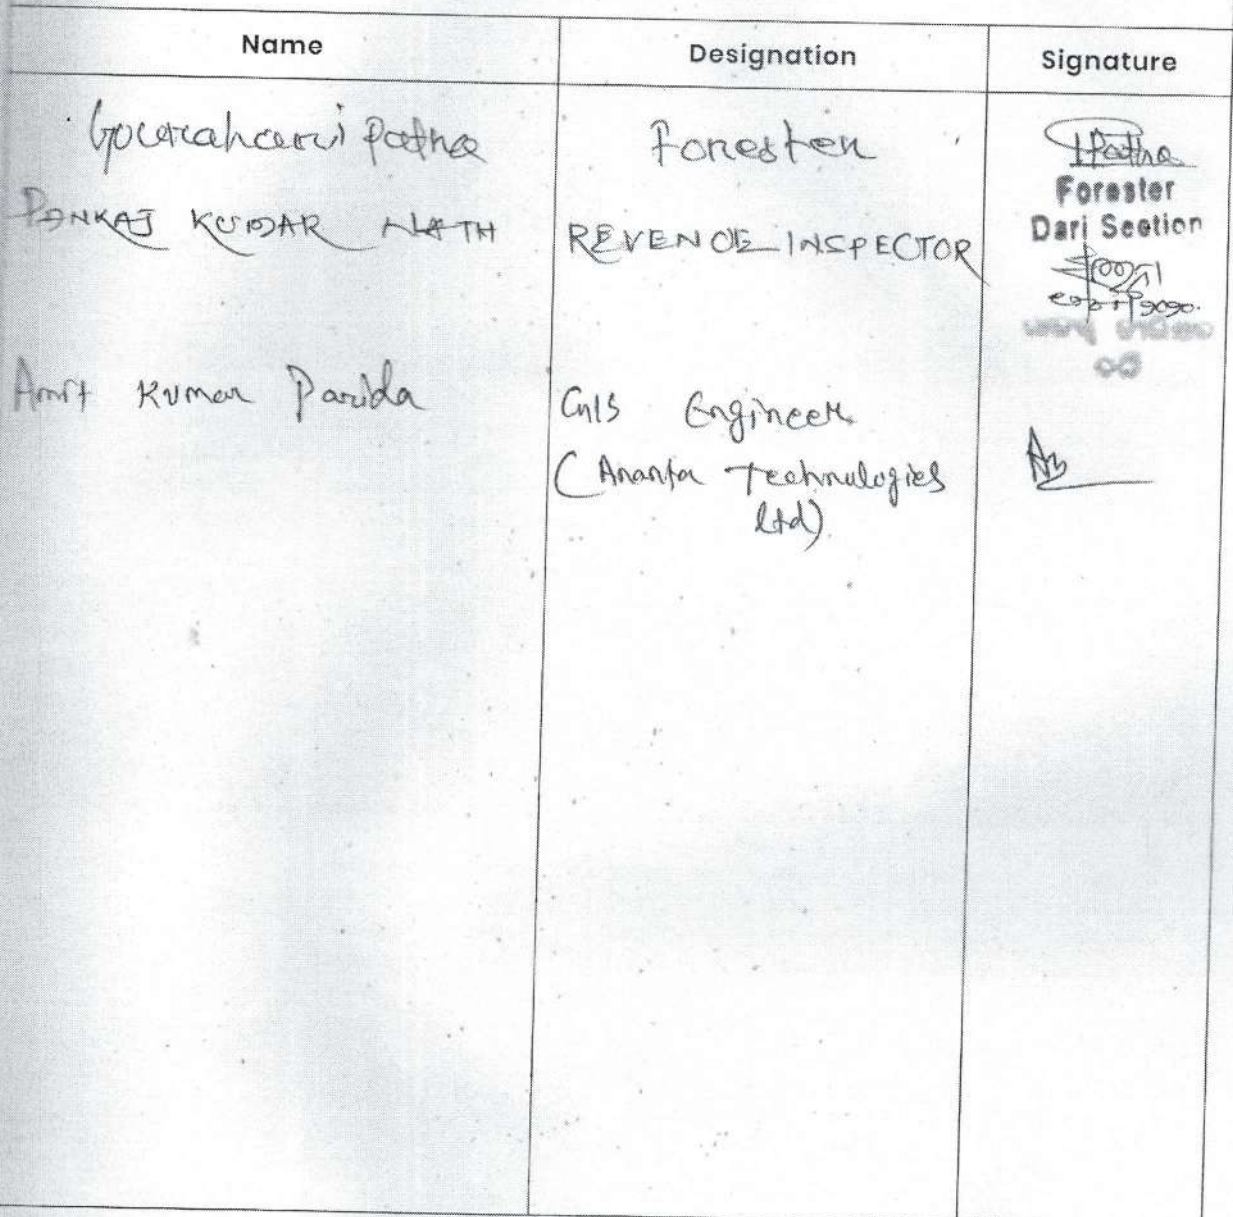 Name Designation Signature
Gourahari Patra Forester Patra
Forester
Dari Seetion
PANKAJ KUMAR NATH REVENUE INSPECTOR
Amit Kumar Parida GIS Engineer
(Ananta Technologies
ltd)